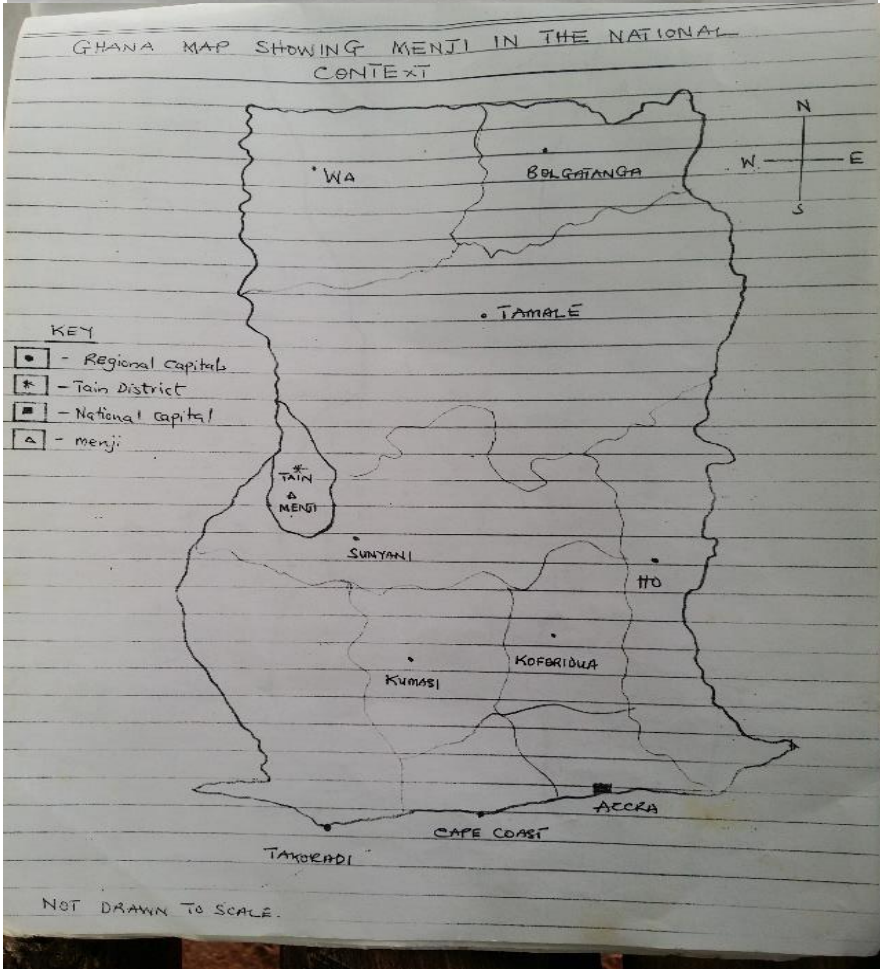 GHANA MAP SHOWING MENJI IN THE NATIONAL
CONTEXT
N
W E
S
WA
BOLGATANGA
TAMALE
KEY
- Regional Capitals
- Tain District
- National Capital
- menji
TAIN
MENJI
SUNYANI
HO
KOFORIDUA
KUMASI
ACCRA
CAPE COAST
TAKORADI
NOT DRAWN TO SCALE.